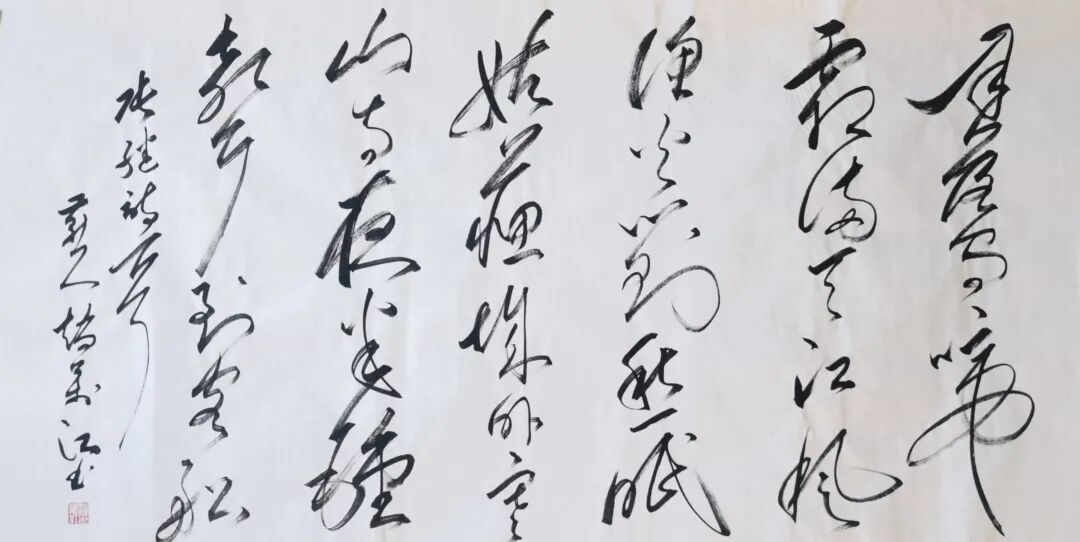 月落烏啼
霜滿天江楓
漁火對愁眠
姑蘇城外寒
山寺夜半鍾
聲到客船
張繼詩
江書